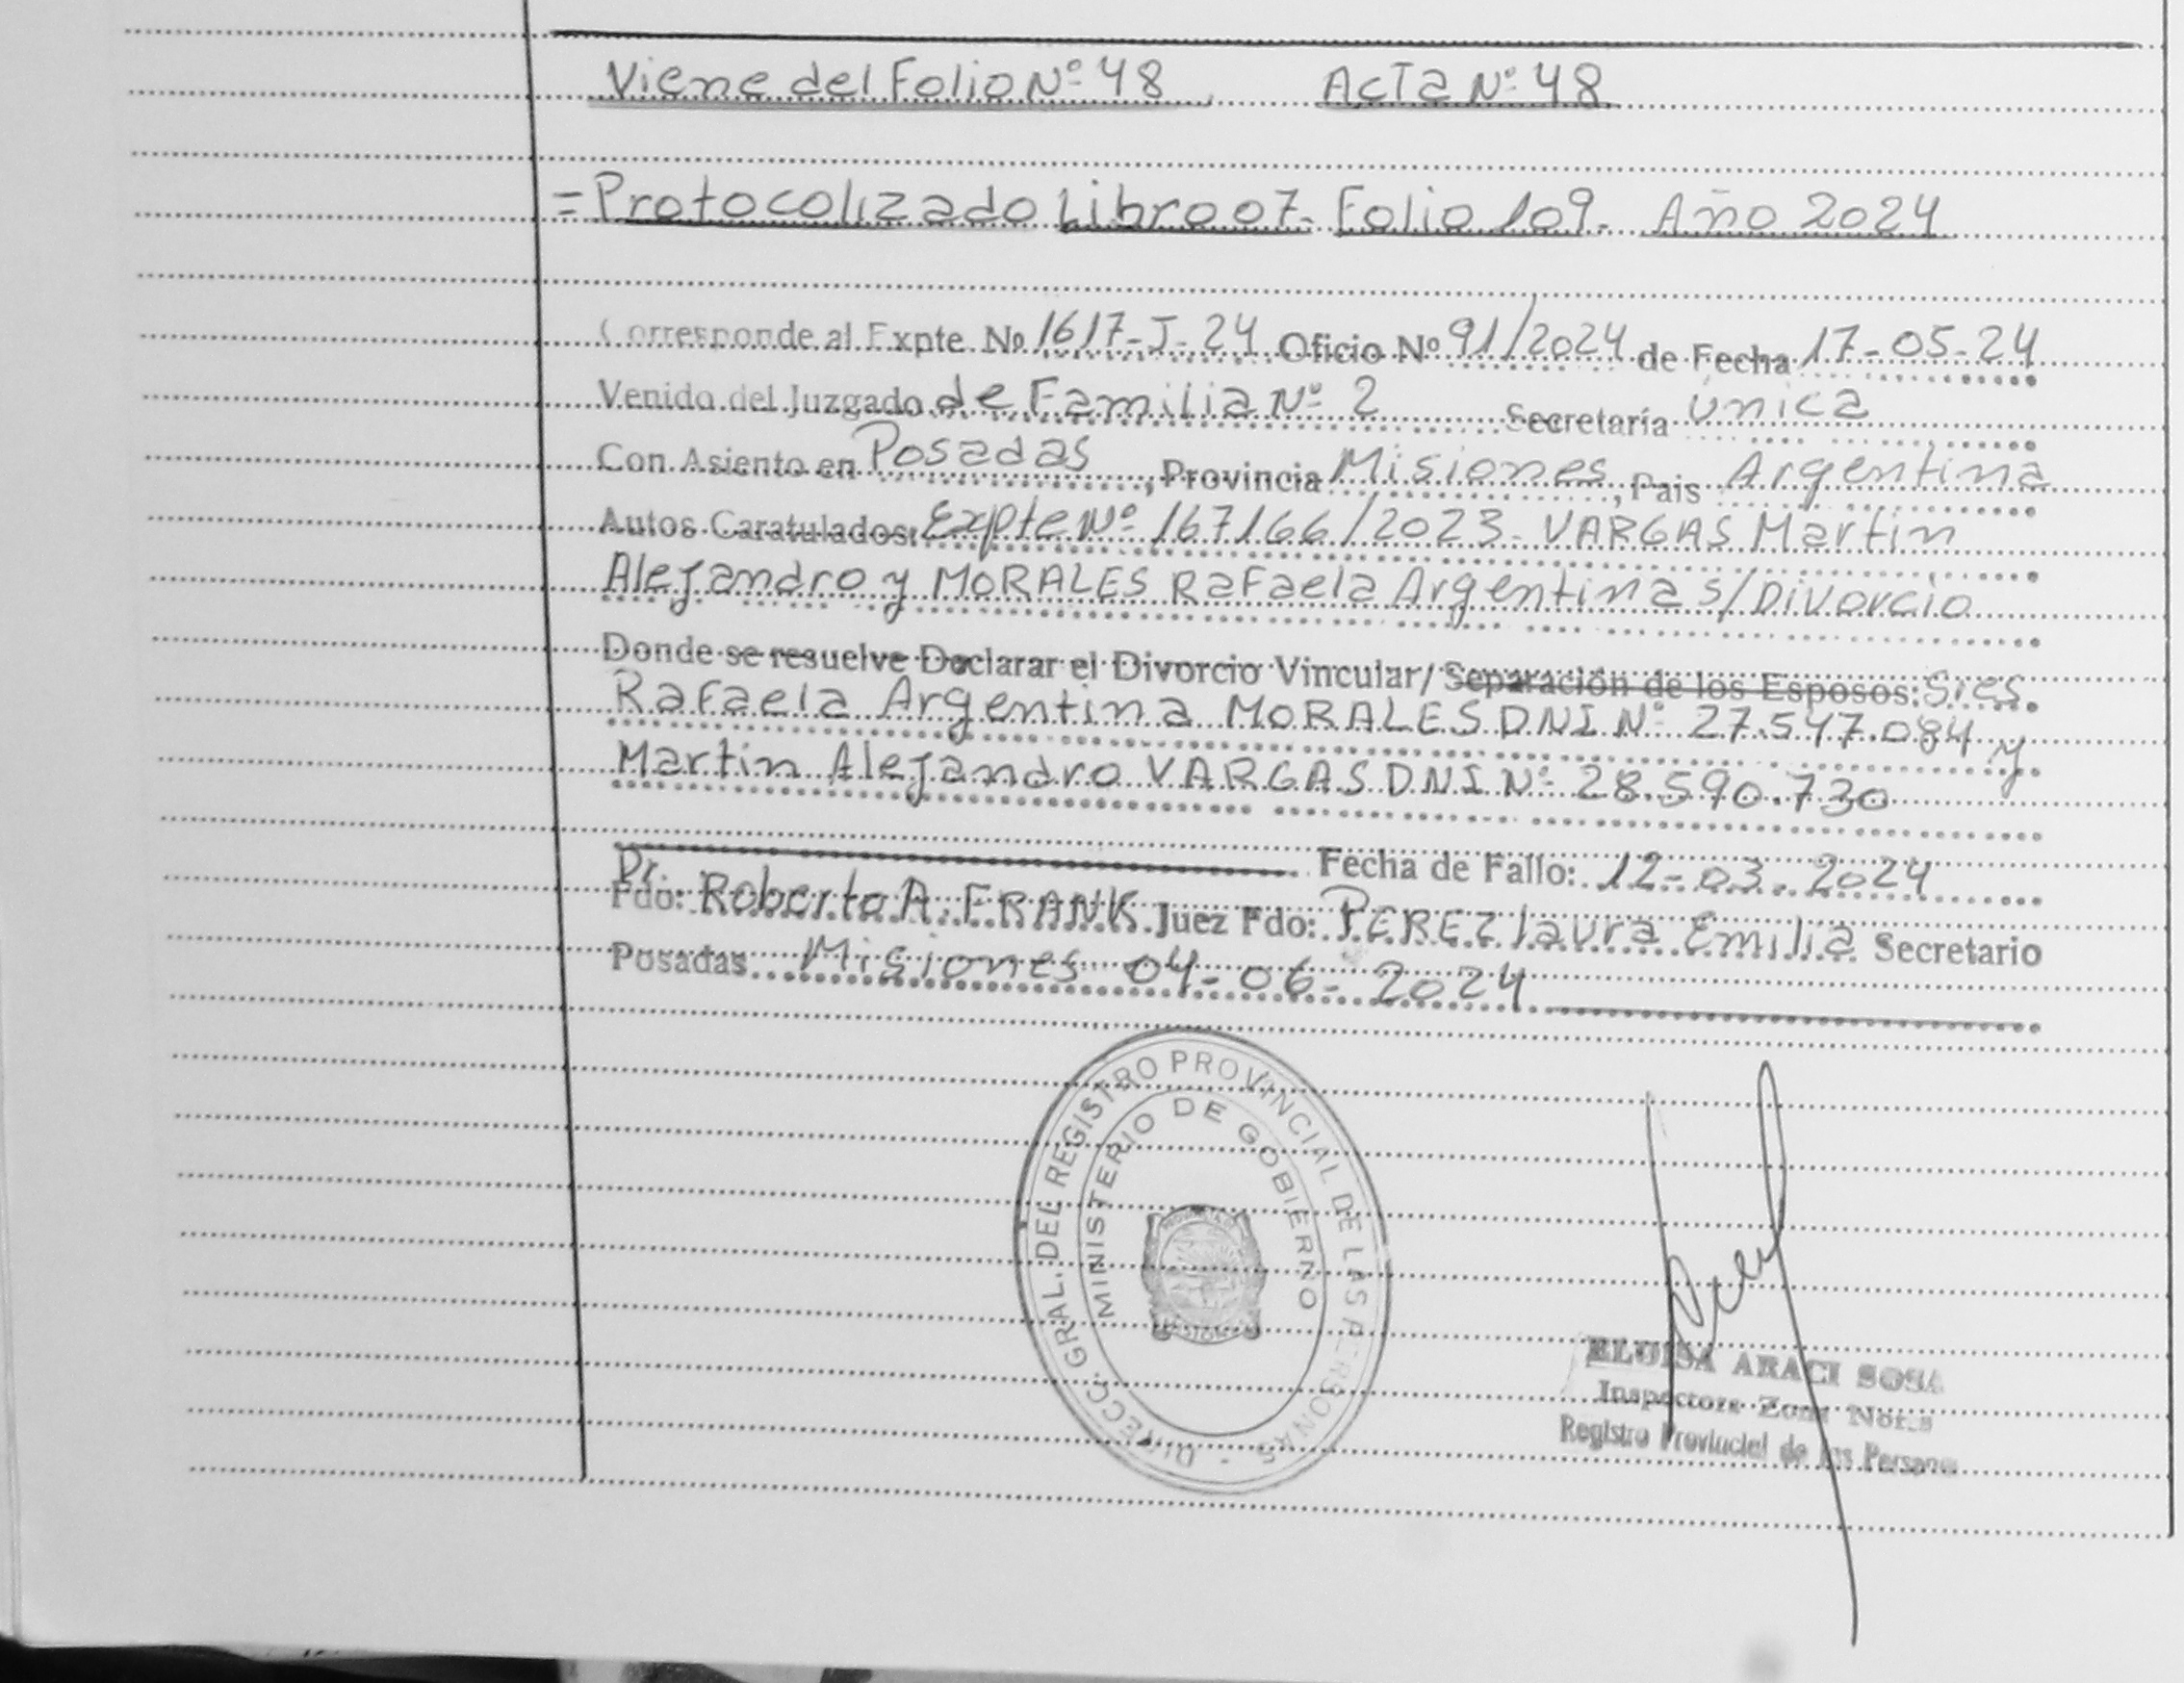 Viene del Folio Nº 48 Acta Nº 48
= Protocolizado Libro 07- Folio 109- Año 2024
Corresponde al Expte Nº 1617-J-24 Oficio Nº 91/2024 de Fecha 17-05-24
Venido del Juzgado de Familia Nº 2 Secretaría única
Con Asiento en Posadas, Provincia Misiones, Pais Argentina
Autos Caratulados: Expte Nº 167166/2023- VARGAS Martin
Alejandro y MORALES Rafaela Argentina s/Divorcio
Donde se resuelve Declarar el Divorcio Vincular/ Separación de los Esposos: Sres.
Rafaela Argentina MORALES DNI Nº 27.547.084 y
Martin Alejandro VARGAS DNI Nº 28.590.730
Fecha de Fallo: 12-03-2024
Dr.
Fdo: Roberto A. FRANK Juez Fdo: PEREZ laura Emilia Secretario
Posadas Misiones 04-06-2024
DIRECC. GRAL. DEL REGISTRO PROVINCIAL DE LAS PERSONAS -
MINISTERIO DE GOBIERNO
ELOISA ARACI SOSA
Inspectora Zona
Registro Provincial de las Personas